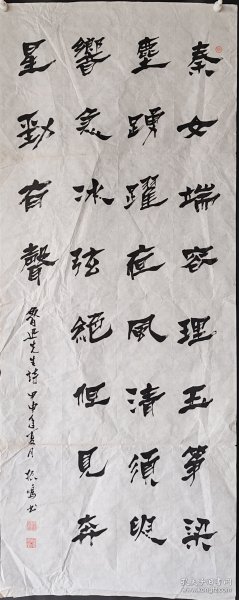 秦女端容理玉箏梁
塵踴躍夜風清須臾
響急冰弦絕但見奔
星勁有聲
魯迅先生詩 甲申年夏月